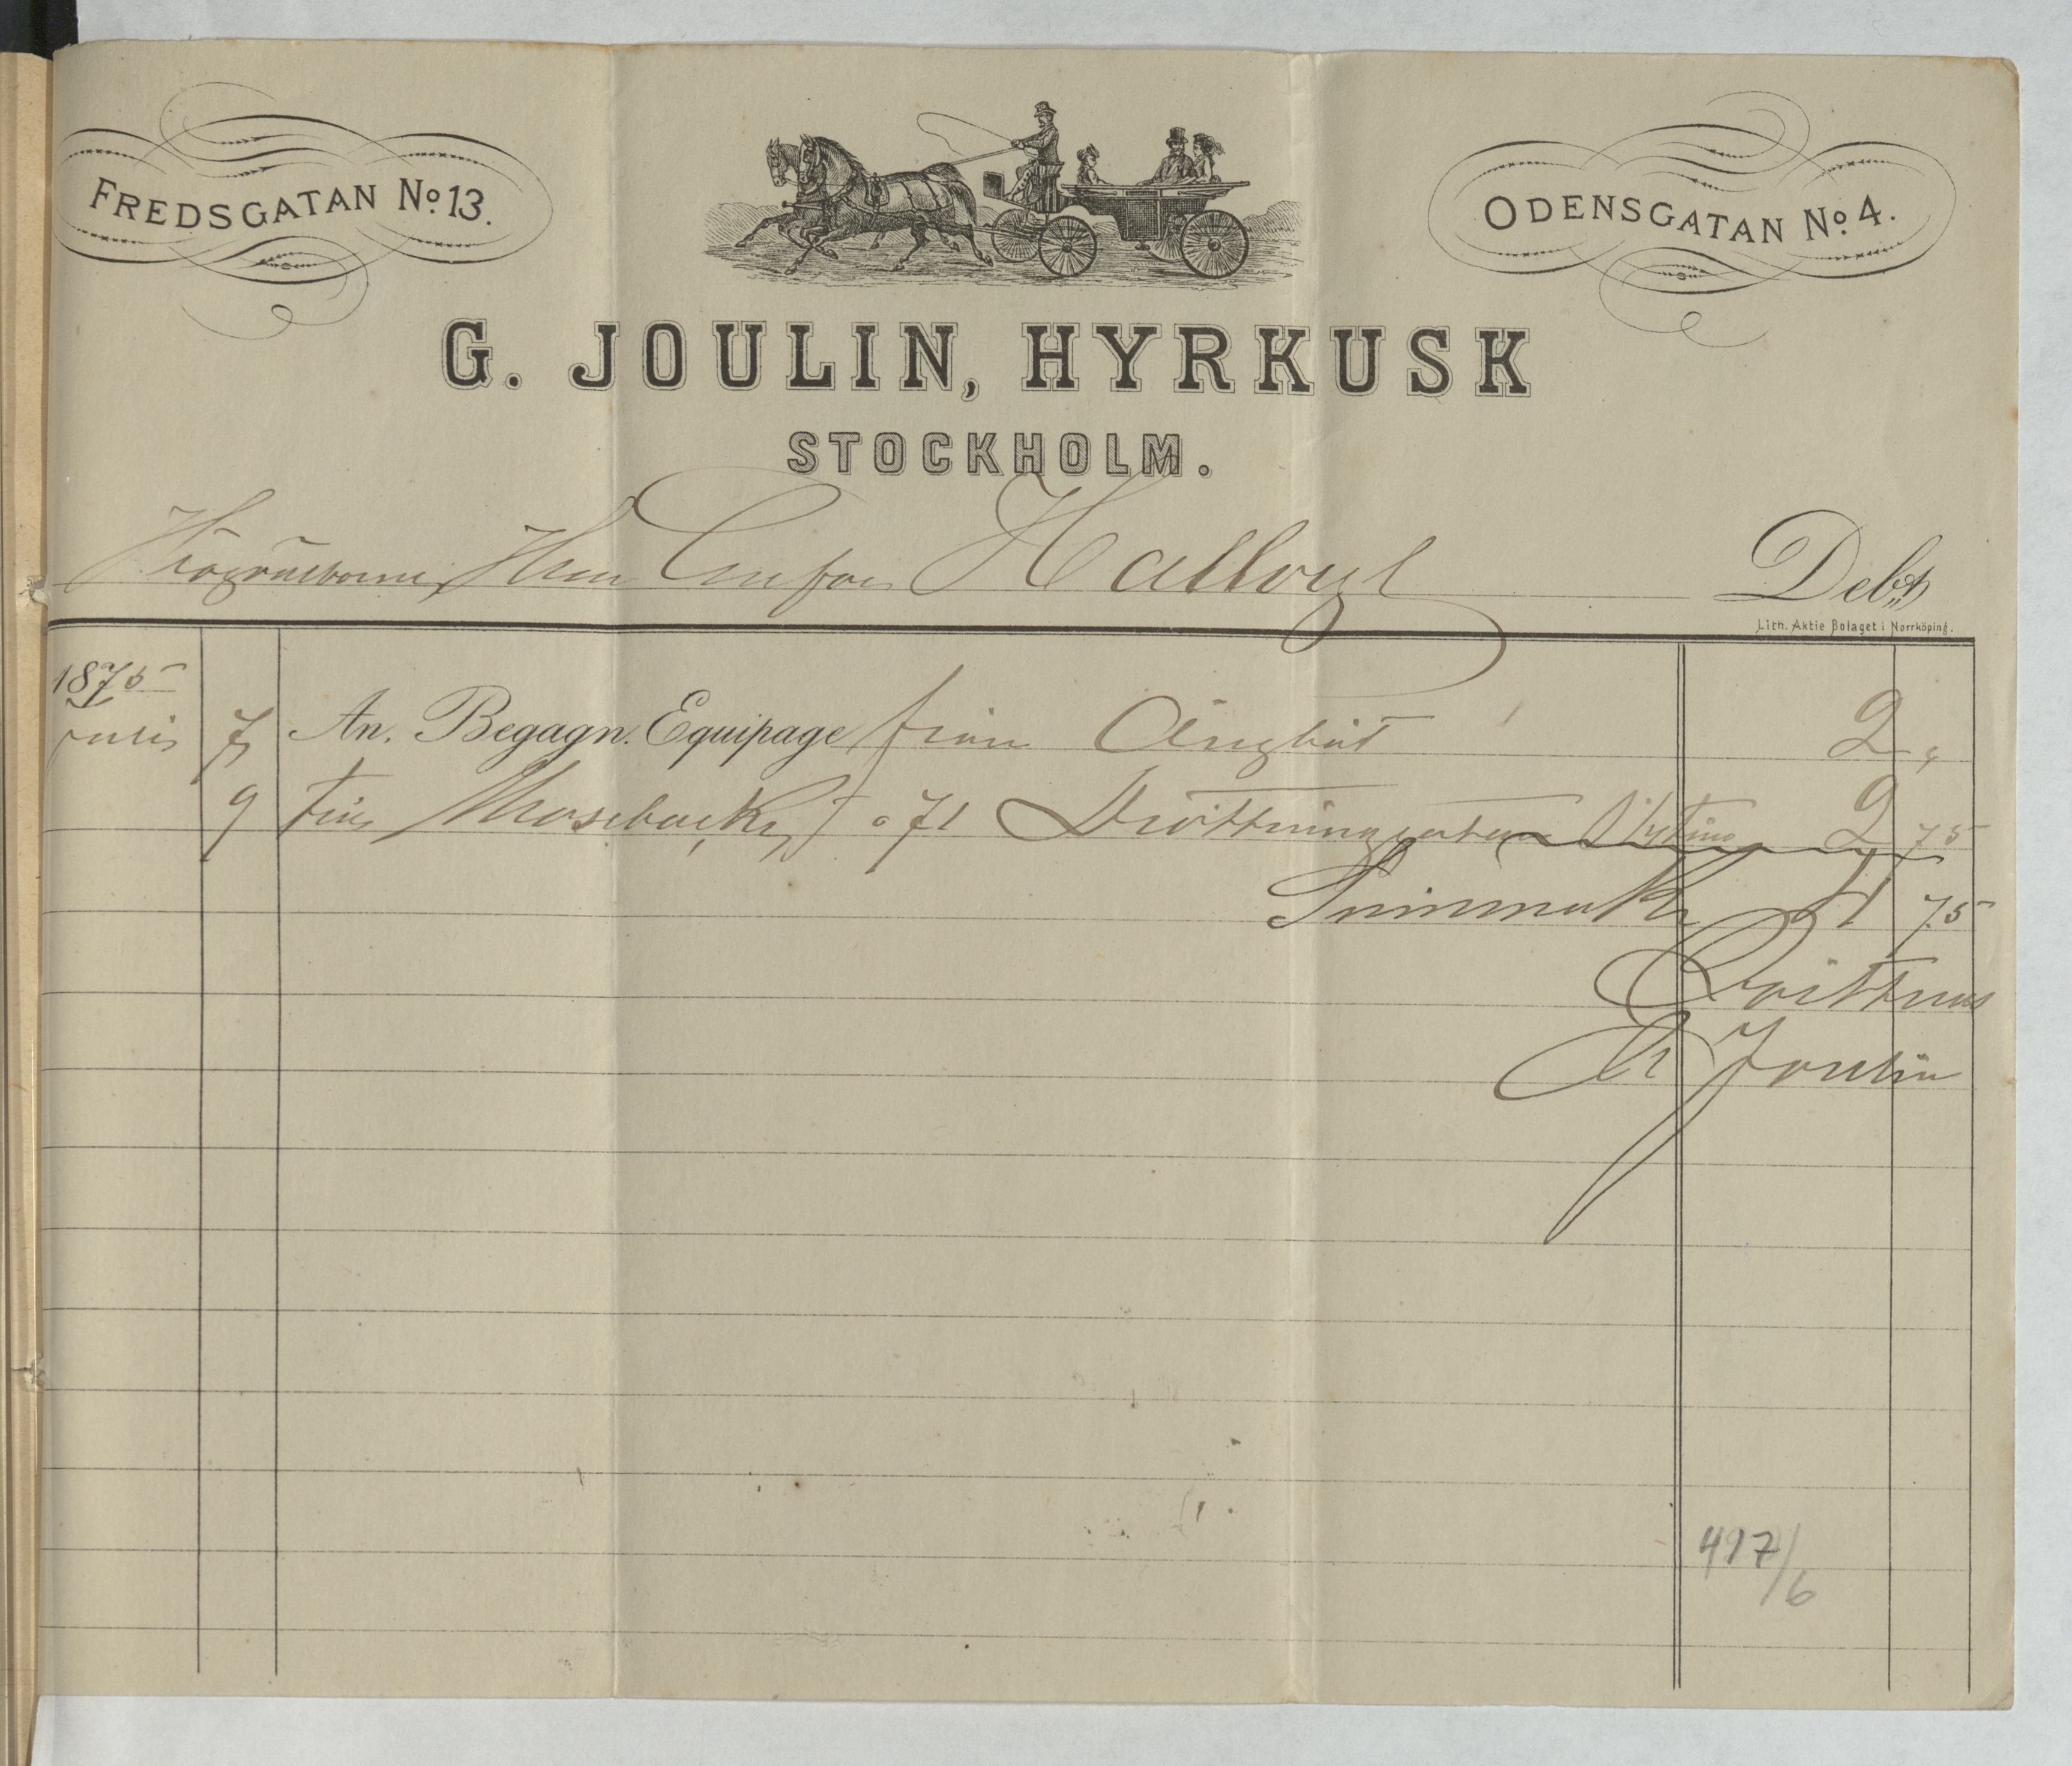 FREDSGATAN No 13.
ODENSGATAN No 4.
G. JOULIN, HYRKUSK
STOCKHOLM.
Herr Hallvyl Debet
Lith. Aktie Bolaget i Norrköping.
1875
Julii 7 An. Begagn. Equipage från Ångbåt 2 "
9 från Mosebacke t o fl Drottninggatan 2 75
Summa Kr 4 75
Qvitteras
G Joulin
497/6